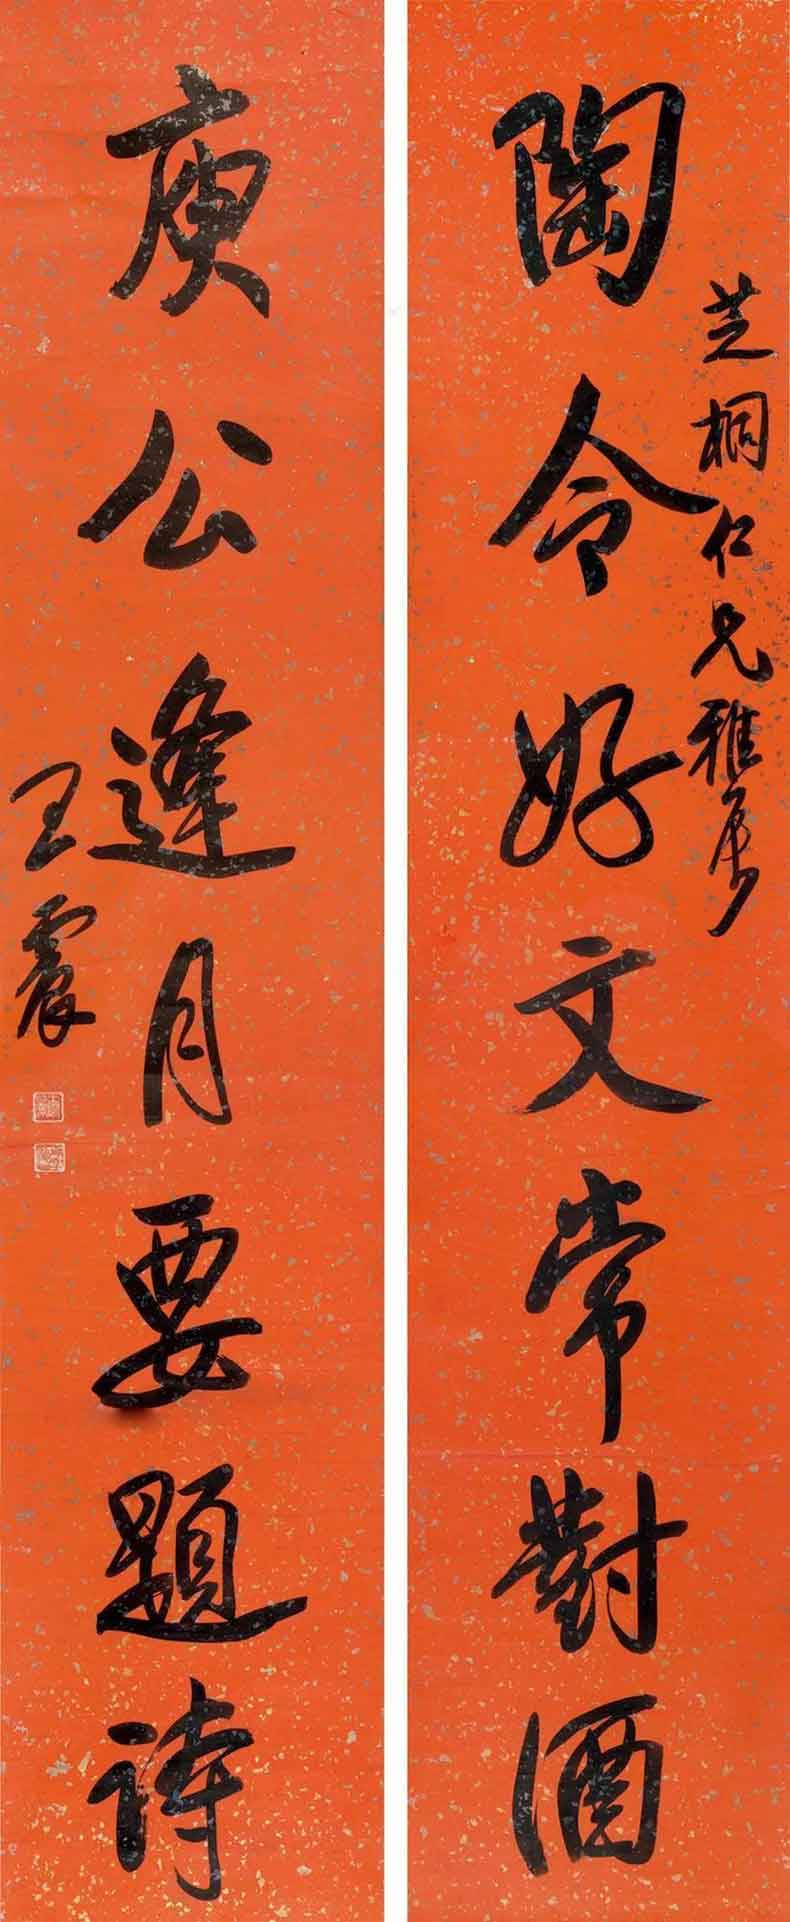 芝桐仁兄雅属
陶令好文常對酒
庾公逢月要題詩
王震